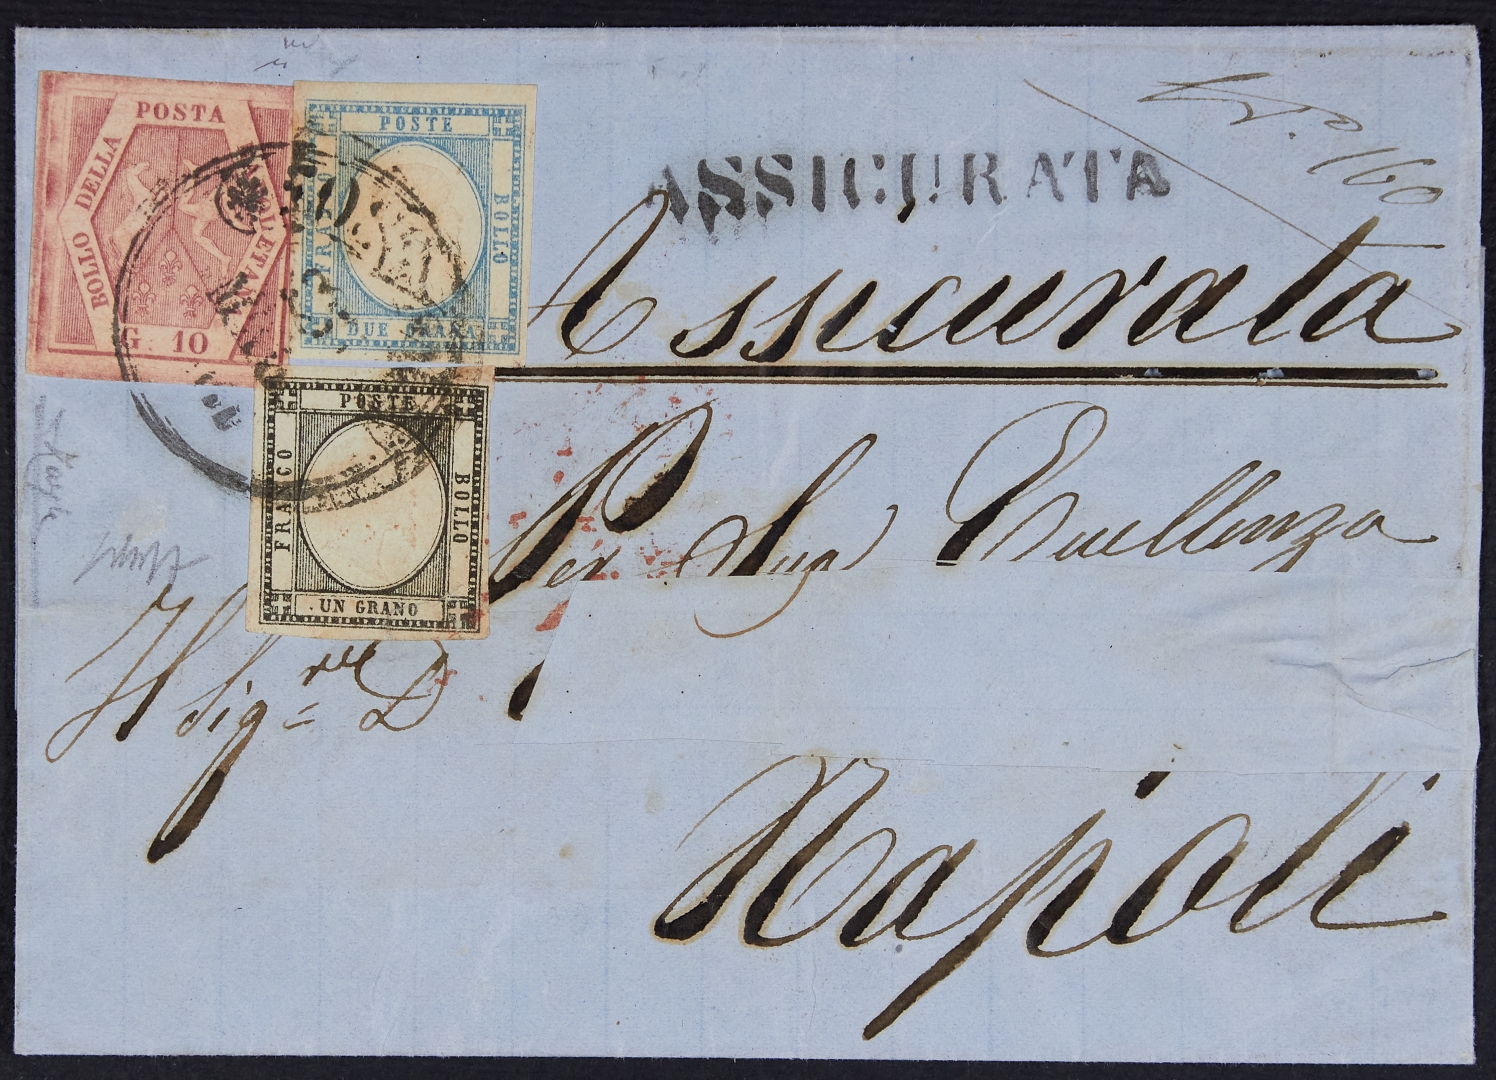 N. 160
POSTA
BOLLO DELLA
G. 10
POSTE
FRANCO
BOLLO
DUE GRANA
ASSICURATA
Assicurata
POSTE
FRANCO
BOLLO
UN GRANO
Per
Al Sig.re D
Napoli